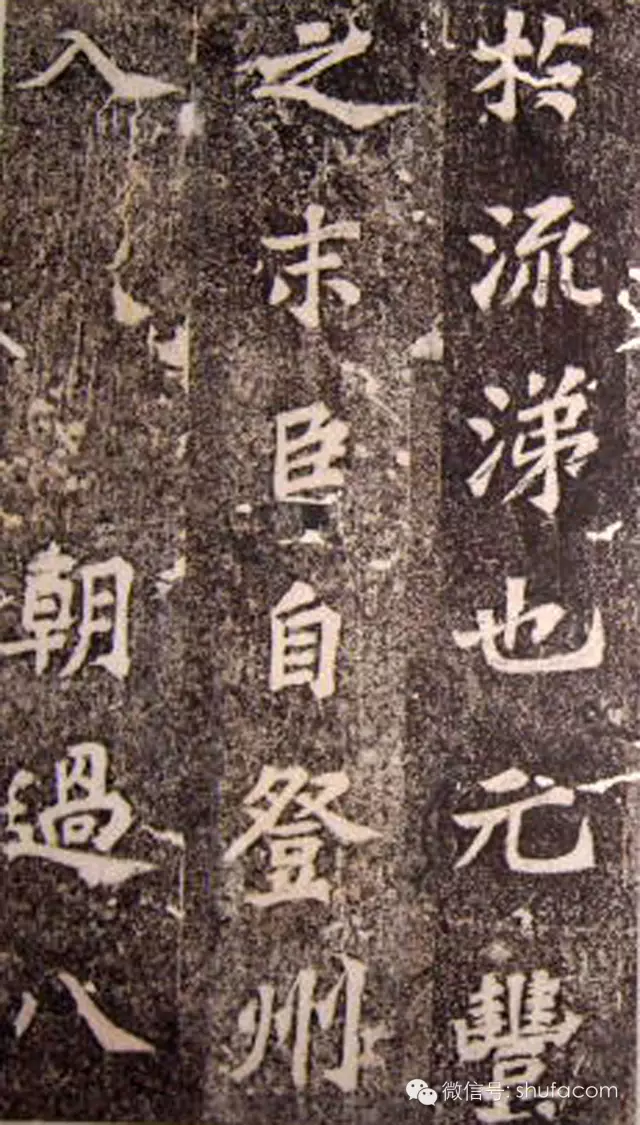 於流涕也元豐
之末臣自登州
入朝過八
微信号: shufacom